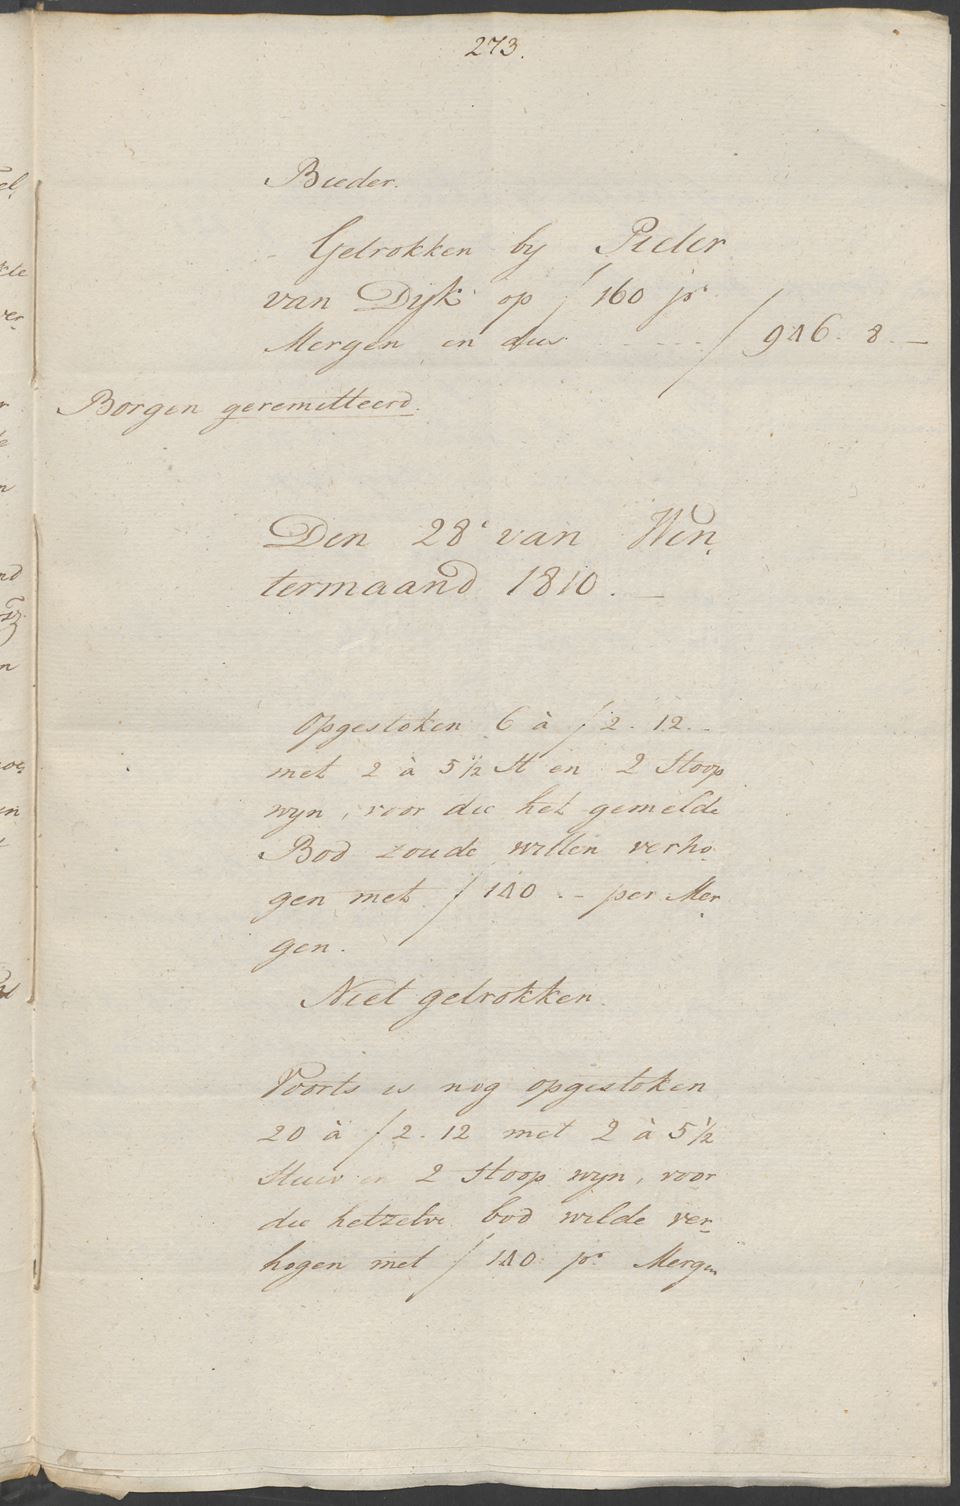 273.
Bieder.
Getrokken by Pieter
van Dijk op ƒ 160 pr
Mergen en dus - - - - ƒ 946. 8. —
Borgen geremitteerd.
Den 28e van Win„
termaand 1810. —
Opgestoken 6 à ƒ 2. 12. -
met 2 à 5 1/2 St en 2 Stoop
wyn, voor die het gemelde
Bod zoude willen verho„
gen met ƒ 140 . - per Mer„
gen.
Niet getrokken.
Voorts is nog opgestoken
20 à ƒ 2. 12 met 2 à 5 1/2
Stuiv en 2 Stoop wyn, voor
die hetzelve bod wilde ver„
hogen met ƒ 140 pr. Mergen